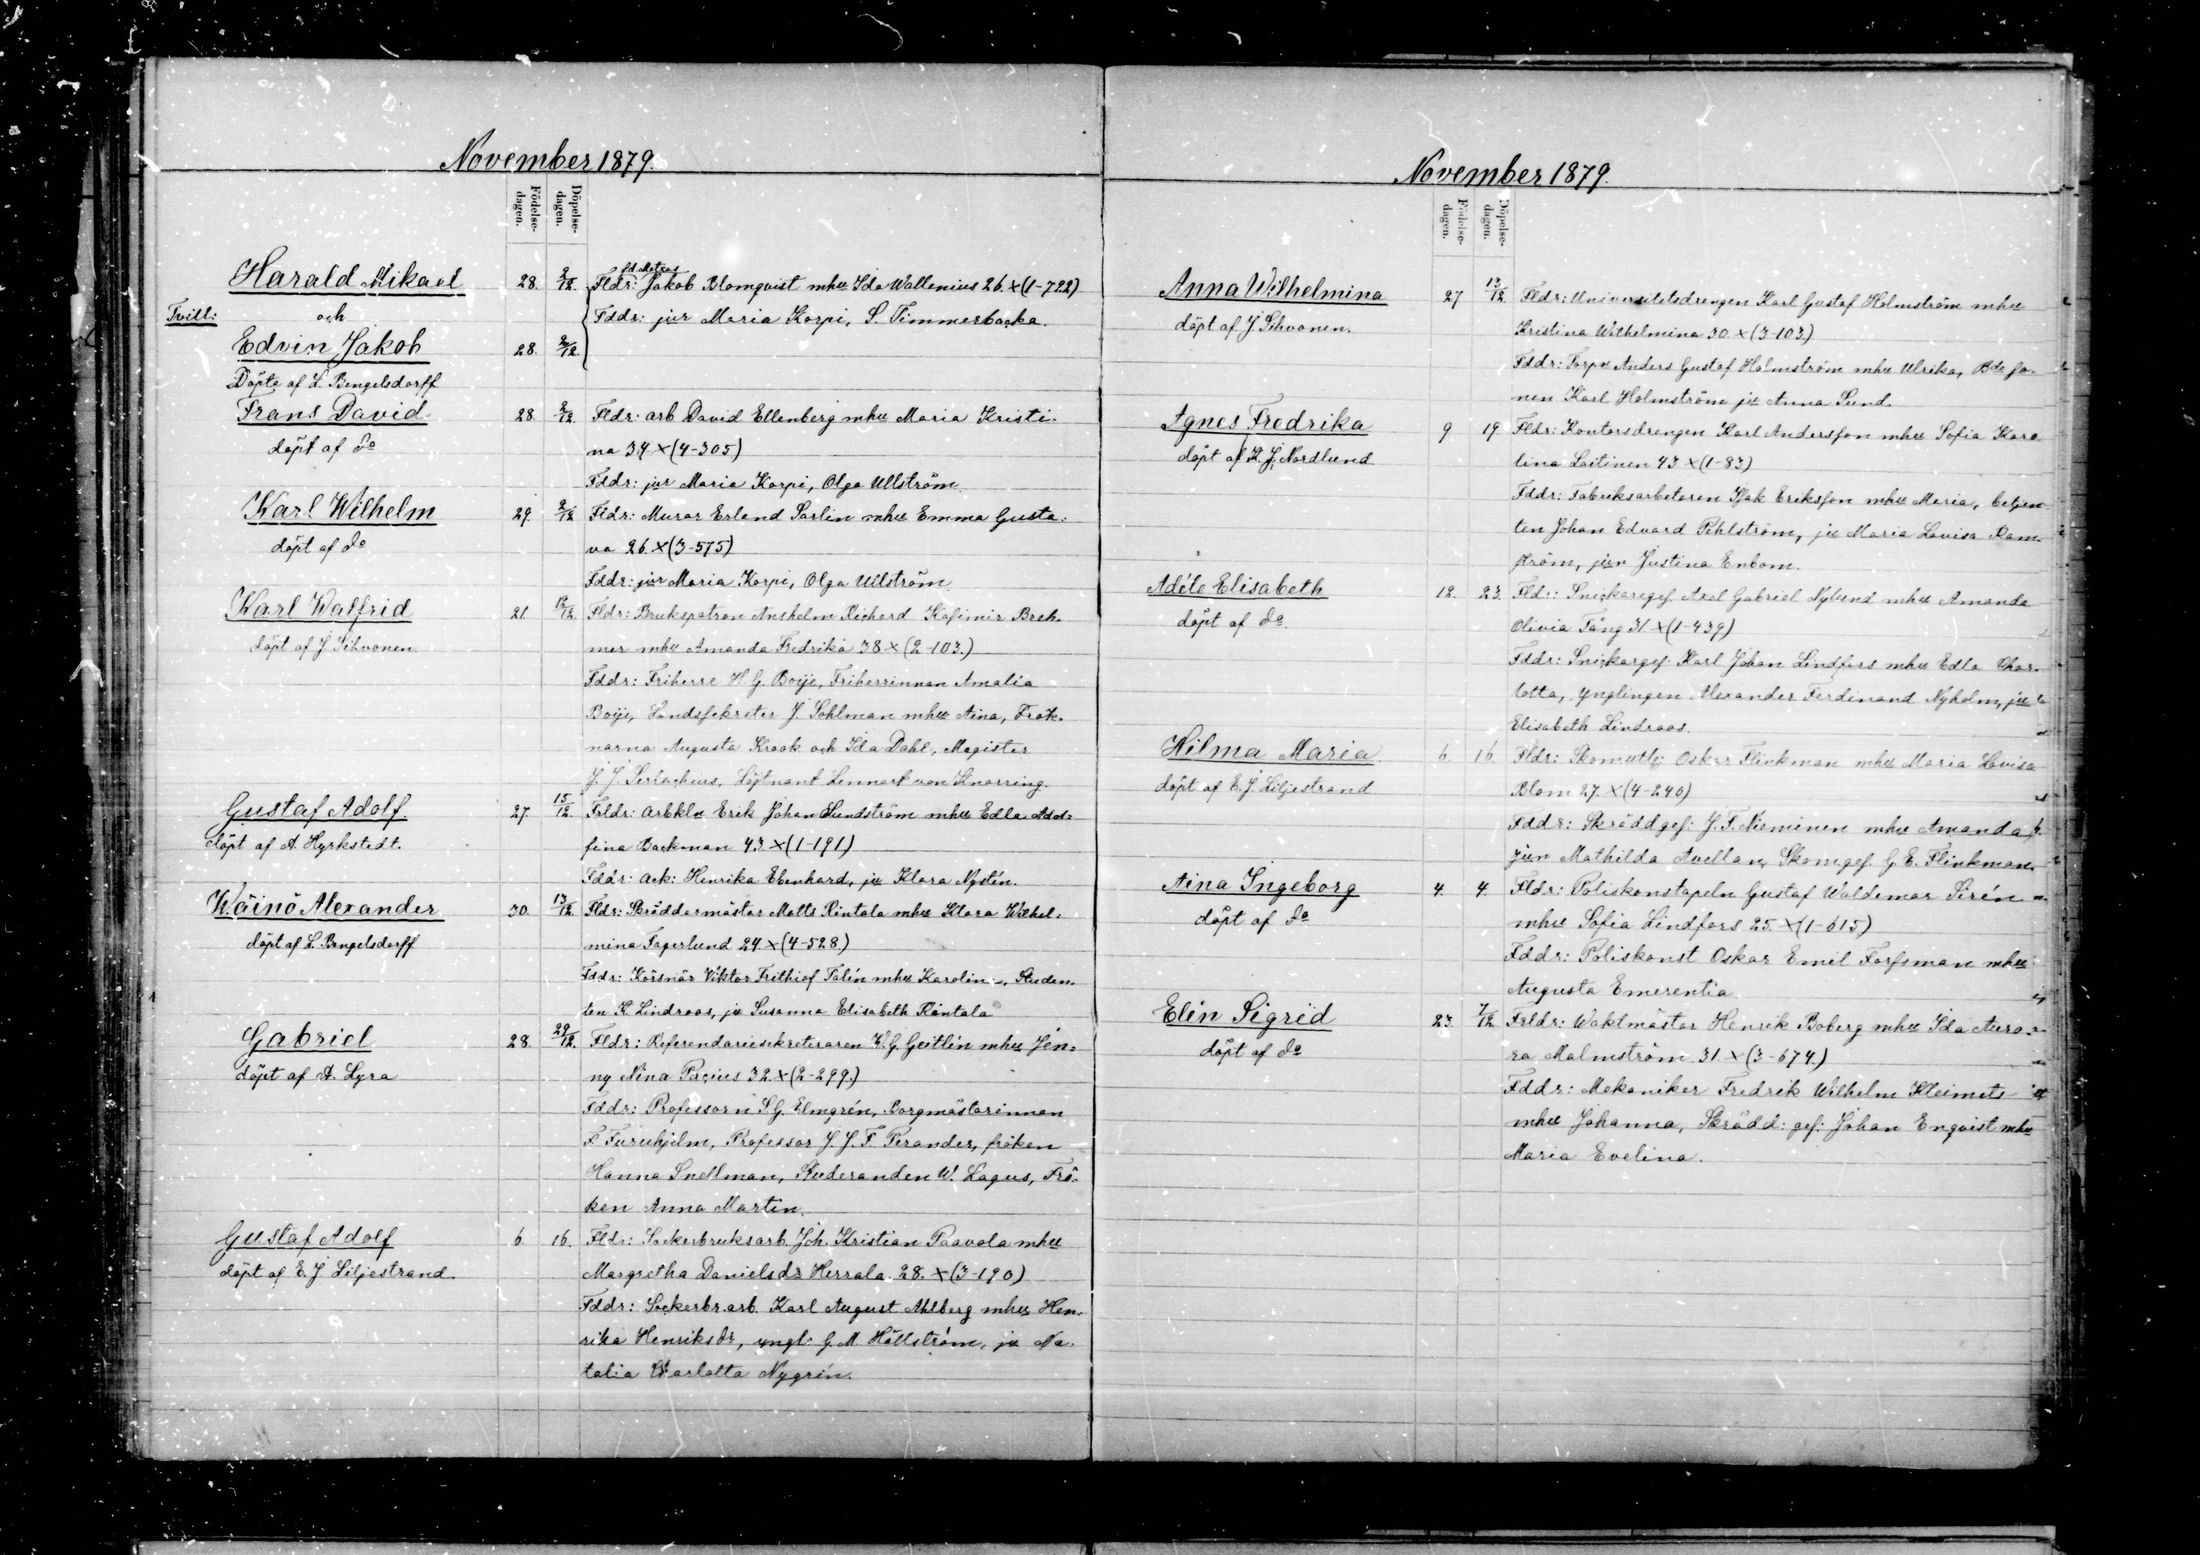 November 1879.
Födelse-
dagen.
Döpelse-
dagen.
Harald Mikael 28. 2/12. Fldr: Jakob Blomqvist mhu Ida Wallenius 26 × (1-722)
Tvill: och Fddr: jur Maria Korpi, S. Timmerbacka.
Edvin Jakob 28. 2/12.
Döpta af L. Bengelsdorff
Frans David 28. 2/12. Fldr: arb David Ellenberg mhu Maria Kristi-
döpt af do na 34 × (4-305)
Fddr: jur Maria Korpi, Olga Ullström.
Karl Wilhelm 29. 2/12 Fldr: Murar Erland Sarlin mhu Emma Gusta-
döpt af do va 26. × (3-575)
Fddr: jur Maria Korpi, Olga Ullström
Karl Walfrid 21. 12/12. Fldr: Brukspatron Anshelm Richard Kasimir Breh-
döpt af J Sihvonen. mer mhu Amanda Fredrika 38 × (2-103.)
Fddr: Friherre H. G. Boije, Friherrinnan Amalia
Boije, Landssekreter J. Sohlman mhu Aina, Frök-
narna Augusta Krook och Ida Dahl, Magister
J. J. Serlachius, Löjtnant Lennart von Knorring.
Gustaf Adolf. 27. 15/12. Frldr: Arbklu Erik Johan Sundström mhu Edla Adol-
döpt af A. Hyrkstedt. fina Backman 43 × (1-191)
Fddr: Ack: Henrika Ebenhard, ju Klara Nystén.
Wäinö Alexander 30. 13/12. Fldr: Skräddarmästar Matts Rintala mhu Klara Wilhel-
döpt af L. Bengelsdorff mina Fagerlund 24. × (4-528)
Fddr: Körsnär Viktor Frithiof Palin mhu Karolin-, Studen-
ten K. Lindroos, ju Susanna Elisabeth Rantala
Gabriel 28. 29/12. Fldr: Referendariesekreteraren K. G. Geitlin mhu Jen-
döpt af A. Lyra ny Nina Pacius 32. × (2-299.)
Fddr: Professorn S. G. Elmgrén, Borgmästarinnan
F Furuhjelm, Professor J. J. F. Perander, fröken
Hanna Snellman, Studeranden W. Lagus, Frö-
ken Anna Martin.
Gustaf Adolf 6. 16. Fldr: Sockerbruksarb. Joh. Kristian Paavola mhu
döpt af E. J Liljestrand. Margretha Danielsdr Herrala. 28. × (3-190)
Fddr: Sockerbr.arb. Karl August Ahlberg mhu Hen-
rika Henriksdr, yngl: G. M. Hällström, ju Na-
talia Charlotta Nygrén.
November 1879.
Födelse-
dagen.
Döpelse-
dagen.
Anna Wilhelmina 27 13/12 Fldr: Universitetsdrengen Karl Gustaf Holmström mhu
döpt af J. Sihvonen. Kristina Wilhelmina 30 × (3-103)
Fddr: Torpu Anders Gustaf Holmström mhu Ulrika, Bde so-
nen Karl Holmström ju Anna Sund.
Agnes Fredrika 9 19 Fldr: Kontorsdrengen Karl Andersson mhu Sofia Karo
döpt af K. J. Nordlund lina Laitinen 43 × (1-83)
Fddr: Fabriksarbetaren Isak Eriksson mhu Maria, betjen-
ten Johan Edvard Pihlström, ju Maria Lovisa Ram-
ström, jun Justina Enbom.
Adéle Elisabeth 12. 23. Fldr: Snickaregef. Axel Gabriel Nylund mhu Amanda
döpt af do. Olivia Tång 31 × (1-439)
Fddr: Snickargef: Karl Johan Lindfors mhu Edla Char-
lotta, ynglingen Alexander Ferdinand Nyholm, ju
Elisabeth Lindroos.
Hilma Maria 6. 16. Fldr: Skomutlj: Oskar Flinkman mhu Maria Lovisa
döpt af E. J. Liljestrand Blom 27. × (4-240)
Fddr: Skräddgef: J. F. Nieminen mhu Amanda
jun Mathilda Avellan, Skomgef. G. E. Flinkman
Aina Ingeborg 4. 4. Fldr: Poliskonstapeln Gustaf Waldemar Sirén
döpt af do mhu Sofia Lindfors 25. × (1-615)
Fddr: Poliskonst Oskar Emil Forssman mhu
Augusta Emerentia
Elin Sigrid 23. 7/12 Frldr: Waktmästar Henrik Boberg mhu Ida Auro-
döpt af do ra Malmström. 31. × (3-674.)
Fddr: Mekaniker Fredrik Wilhelm Kleimets
mhu Johanna, Skrädd: gef: Johan Enqvist mhu
Maria Evelina.